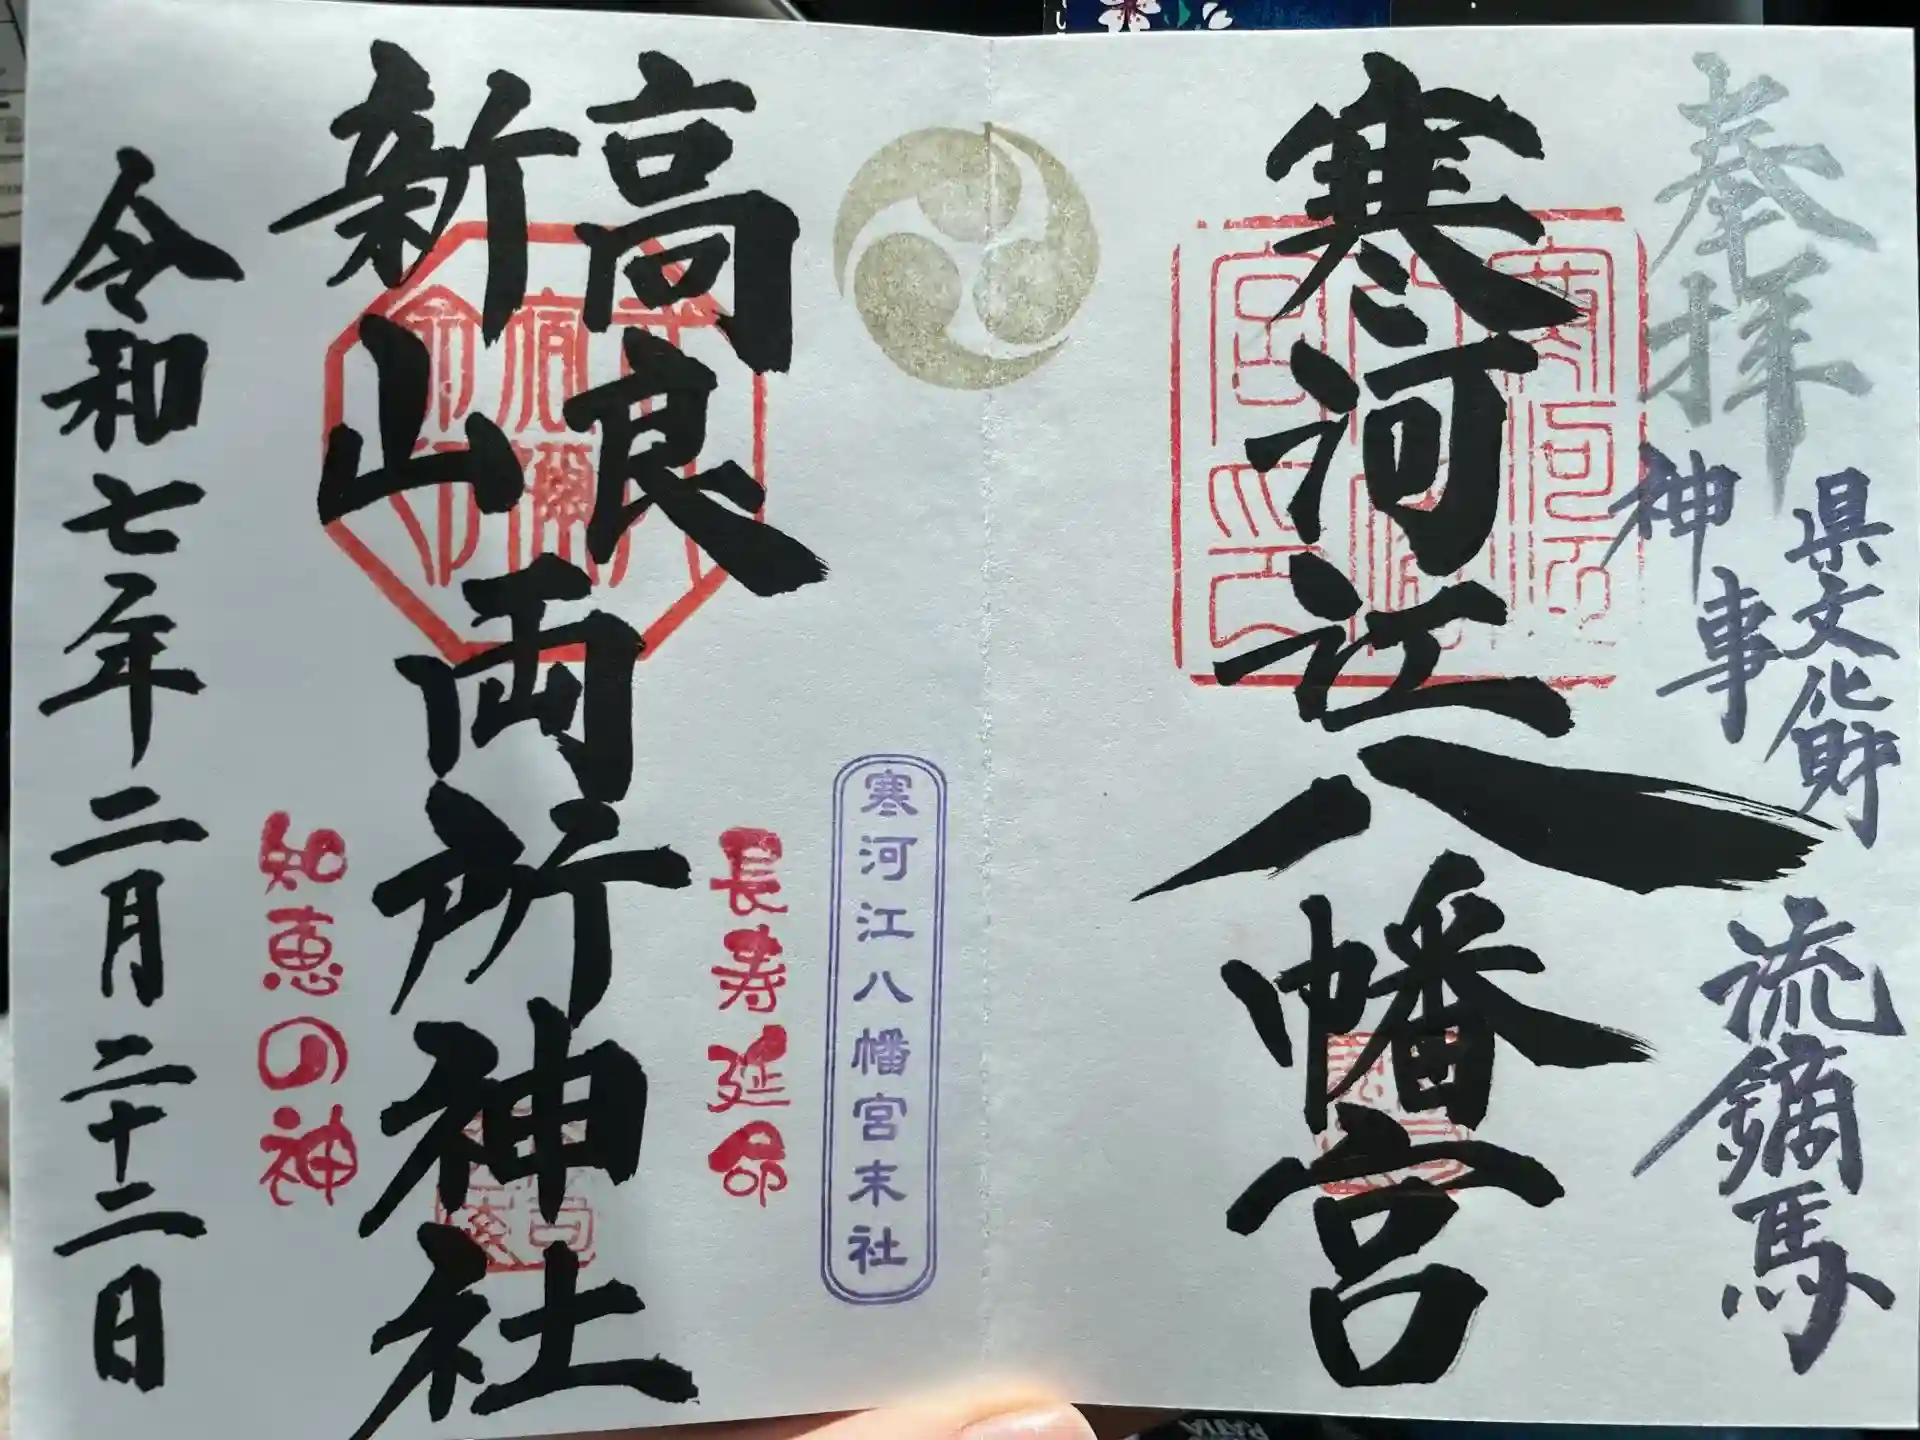 奉拝
県文化財
神事
流鏑馬
寒河江八幡宮
寒河江八幡宮末社
長寿延命
高良
新山
両所神社
知恵の神
令和七年二月二十二日